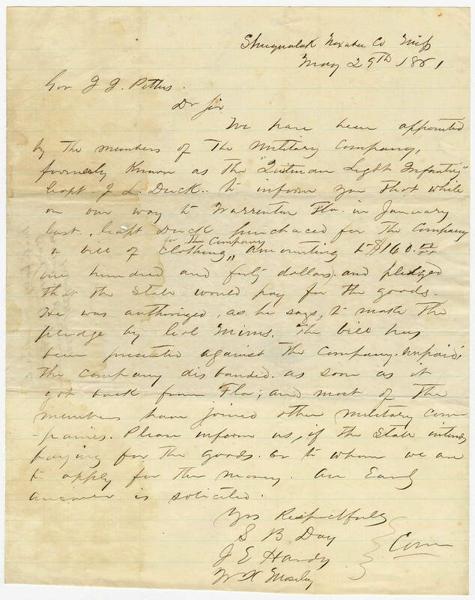 Shuqualak Noxubee Co Miss
May 29th 1861
Gov J. J. Pettus
Dr Sir
We have been appointed
by the members of the Military Company,
formerly Known as the "Quitman Light Infantry"
Capt J L. Duck. to inform you that while
on our way to Warrenton Fla. in January
last, Capt Duck purchased for the Company
a bill of clothing, for the Company amounting to $160.00
one hundred and forty dollars. and pledged
that the State would pay for the goods.
He was authorized, as he says, to make the
pledge by Col Mims. The bill has
been presented against the Company. unpaid.
the company disbanded. as soon as it
got back from Fla; and most of the
members have joined other military com
-panies. Please inform us, if the State intends
paying for the goods. or to whom we are
to apply for the money. An Early
answer is solicited.
Yrs Respectfully
S B Day
J E Hardy
Com
W H Mosely